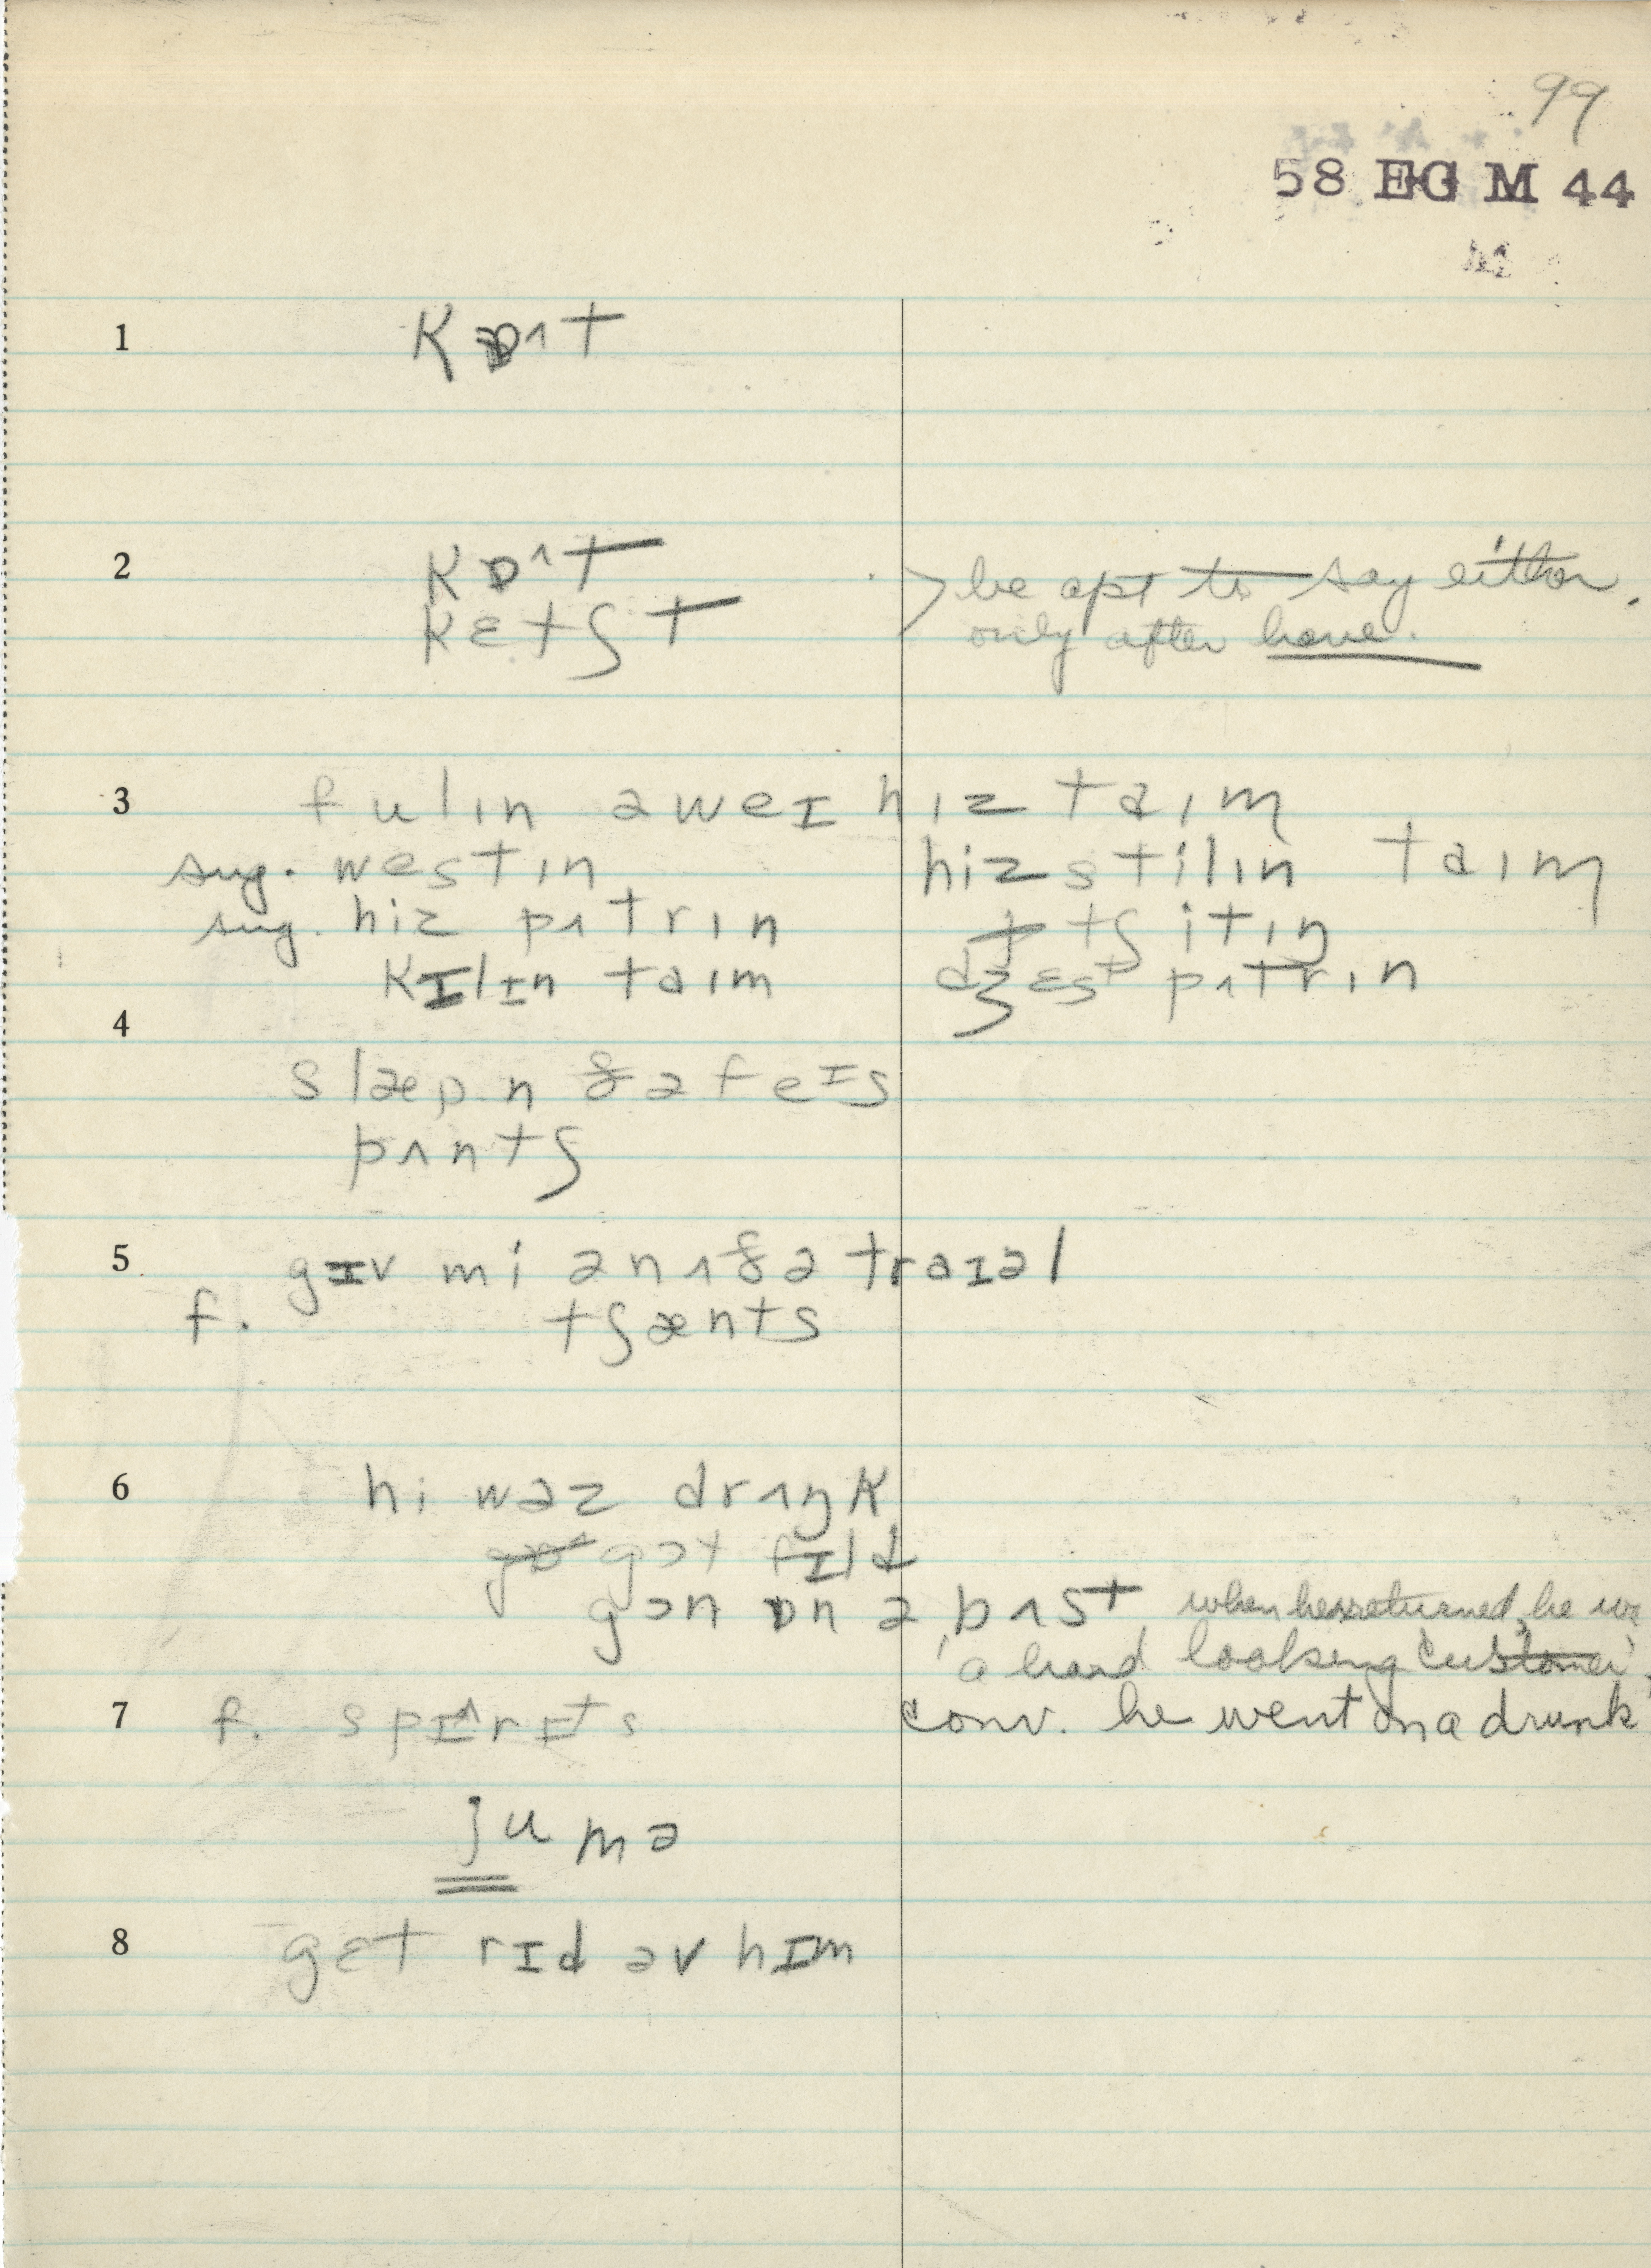 99
58 EG M 44
1 kɒʌt
2 kɒʌt
kɛtʃt
be apt to say either.
only after have.
3 fulɪn əweɪ hɪz taɪm
sug. westɪn hiz stilɪn taɪm
sug. hiz pʌtrɪn tʃitɪŋ
kɪlɪn taɪm dʒɛst pʌtrɪn
4
slæp n ðə feɪs
pʌntʃ
5 gɪv mi ənʌðə traɪəl
f. tʃænts
6 hi wəz drʌŋk
gɔt fɪld
gɔn ɒn ə bʌst when he returned, he wa
'a hard looking customer'.
7 f. spɪʌrɪts conv. he went on a drunk
ʒumə
8 gɛt rɪd əv hɪm